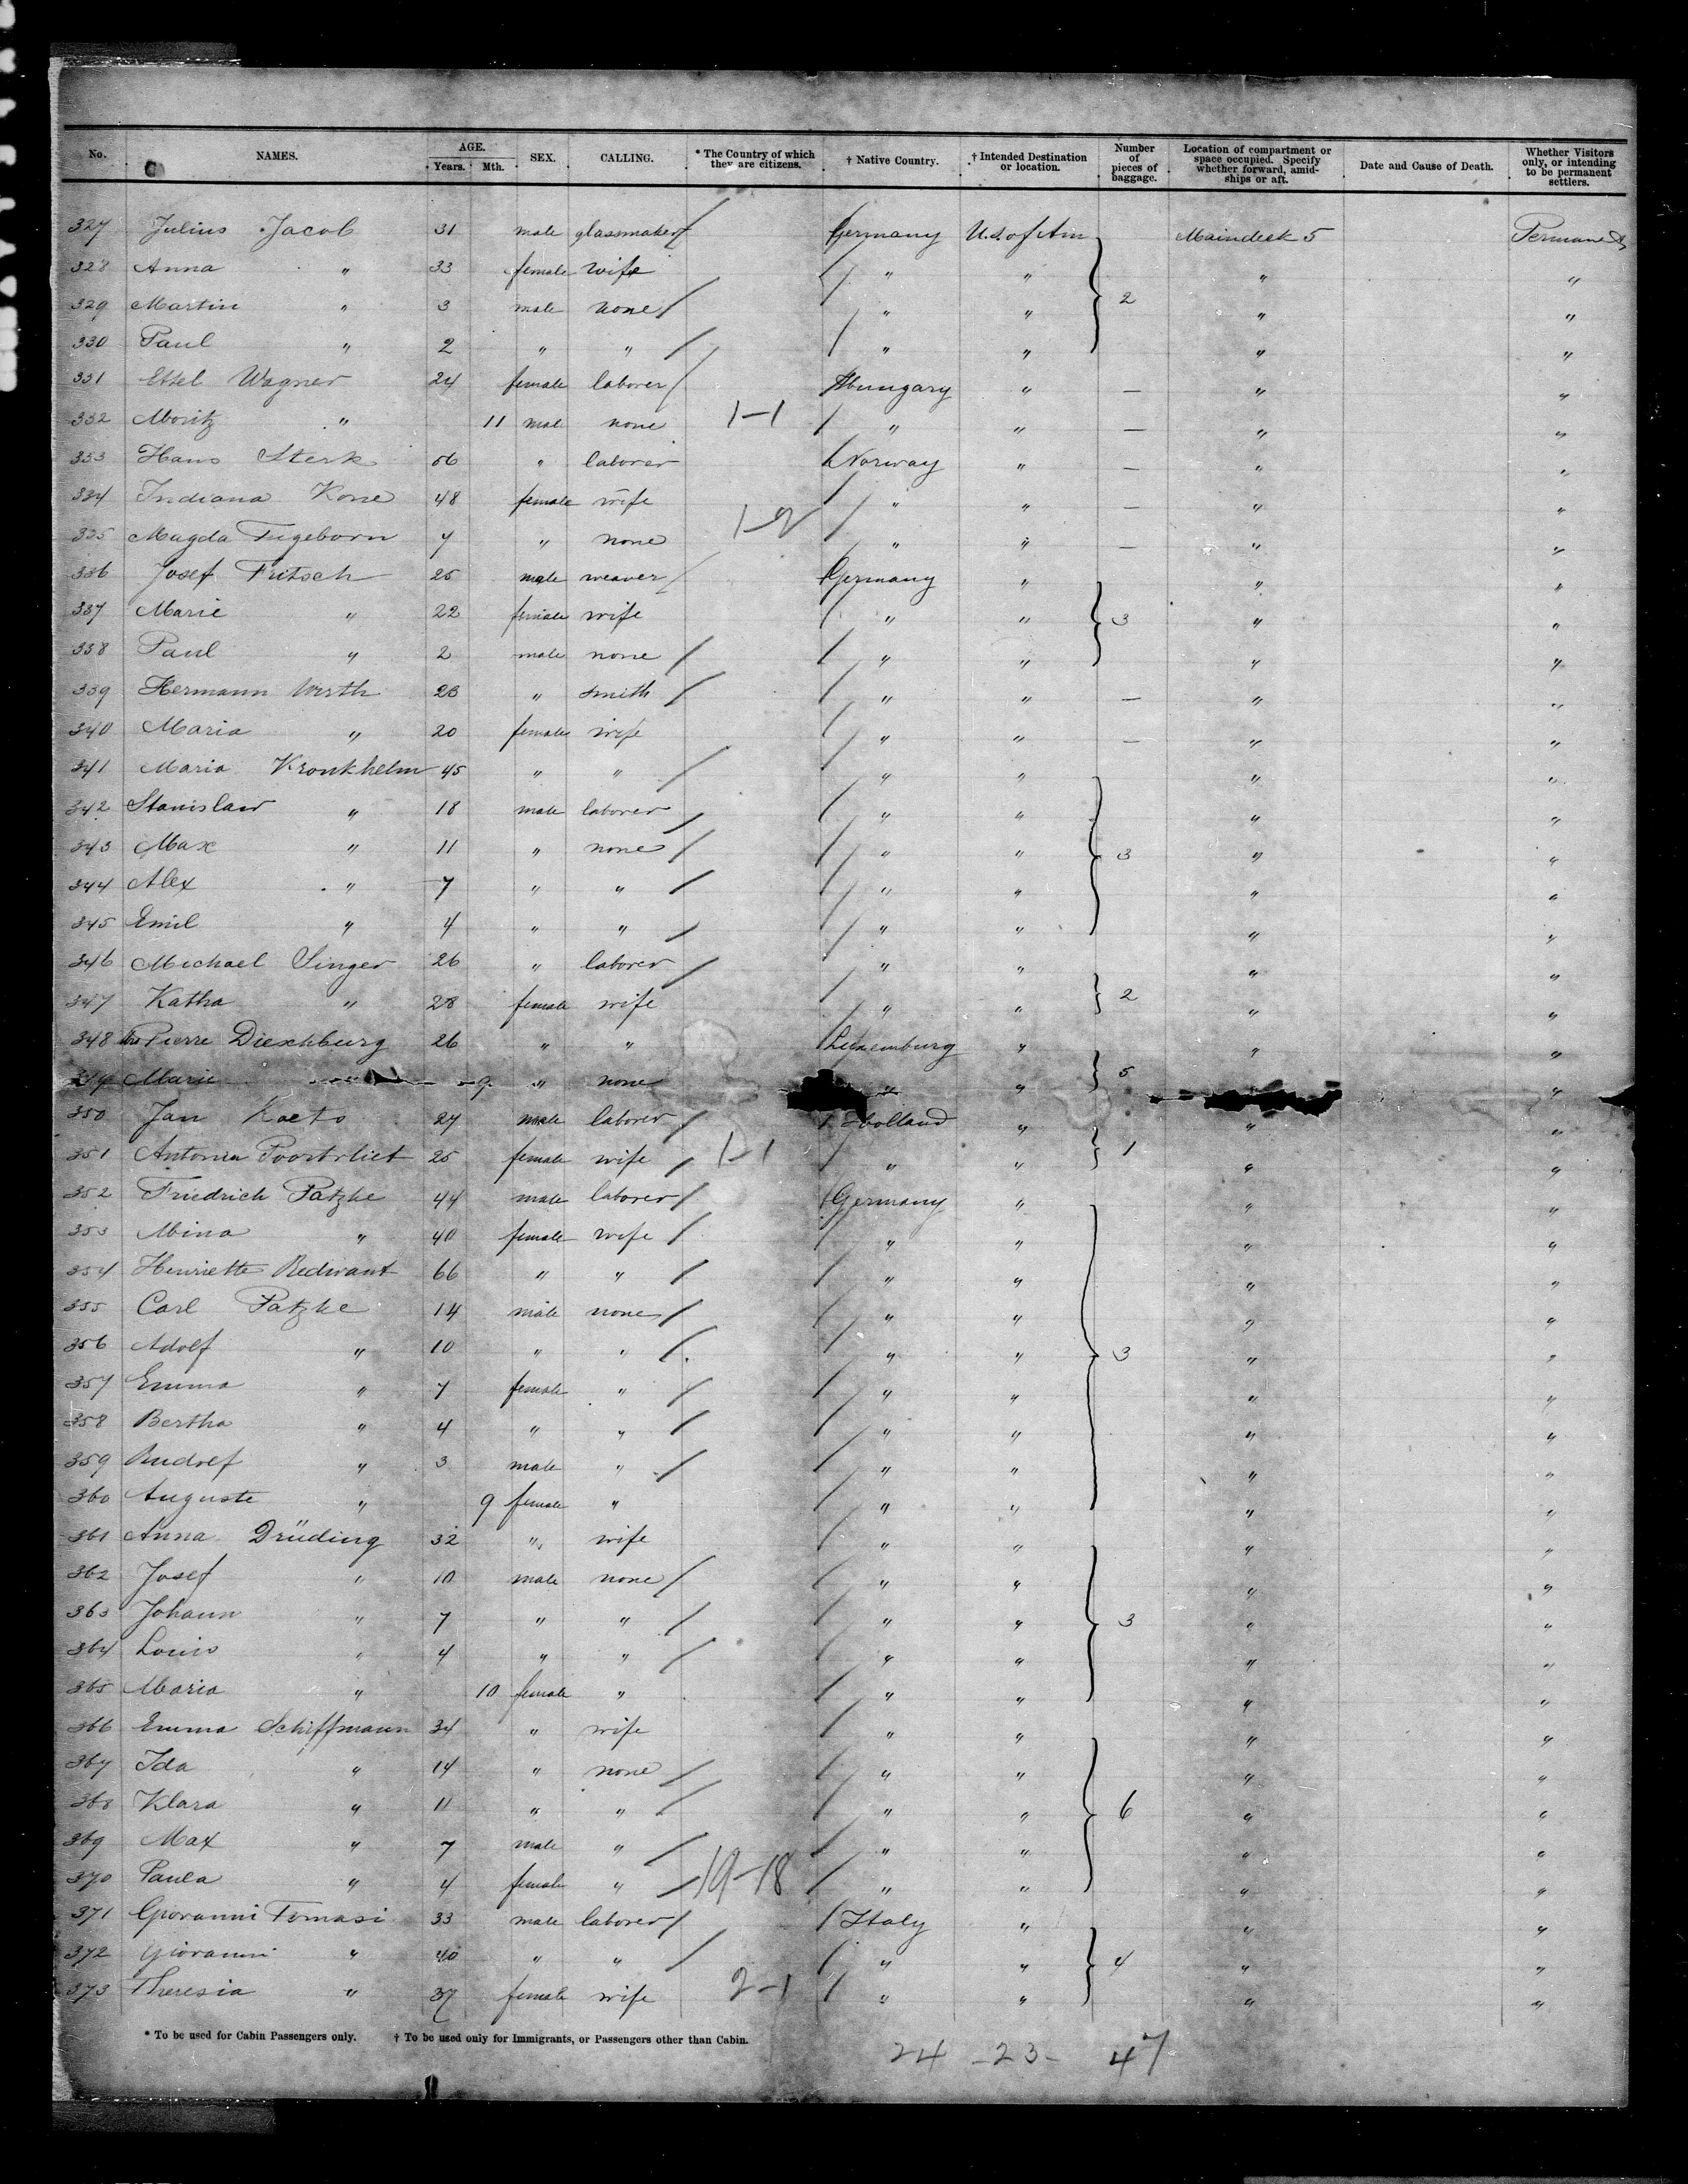 No. NAMES. AGE. Years. Mth. SEX. CALLING. * The Country of which they are citizens. † Native Country. † Intended Destination or location. Number of pieces of baggage. Location of compartment or space occupied. Specify whether forward, amidships or aft. Date and Cause of Death. Whether Visitors only, or intending to be permanent settlers.
327 Julius Jacob 31 male glassmaker Germany U.S. of Am Maindeck 5 Permanent
328 Anna " 33 female wife " " " "
329 Martin " 3 male none " " 2 " "
330 Paul " 2 " " " " " "
331 Etel Wagner 24 female laborer Hungary " — " "
332 Moritz " 11 male none 1-1 " " — " "
333 Hans Sterk 56 " laborer Norway " — " "
334 Indiana Kone 48 female wife " " — " "
335 Magda Tigeborn 7 " none 1-2 " " — " "
336 Josef Fritsch 25 male weaver Germany " " "
337 Marie " 22 female wife " " 3 " "
338 Paul " 2 male none " " " "
339 Hermann Wirth 23 " smith " " — " "
340 Maria " 20 female wife " " — " "
341 Maria Kronkhelm 45 " " " " " "
342 Stanislaw " 18 male laborer " " " "
343 Max " 11 " none " " 3 " "
344 Alex " 7 " " " " " "
345 Emil " 4 " " " " " "
346 Michael Singer 26 " laborer " " " "
347 Katha " 28 female wife " " 2 " "
348 Mrs Pierre Dieschburg 26 " " Luxemburg " " "
349 Marie 9 " none " " 5 " "
350 Jan Kaeto 27 male laborer Holland " " "
351 Antonia Poortvliet 25 female wife 1-1 " " 1 " "
352 Friedrich Patzke 44 male laborer Germany " " "
353 Mina " 40 female wife " " " "
354 Henriette Redivant 66 " " " " " "
355 Carl Patzke 14 male none " " " "
356 Adolf " 10 " " " " 3 " "
357 Emma " 7 female " " " " "
358 Bertha " 4 " " " " " "
359 Rudolf " 3 male " " " " "
360 Auguste " 9 female " " " " "
361 Anna Drüding 32 " wife " " " "
362 Josef " 10 male none " " " "
363 Johann " 7 " " " " 3 " "
364 Louis " 4 " " " " " "
365 Maria " 10 female " " " " "
366 Emma Schiffmann 34 " wife " " " "
367 Ida " 14 " none " " " "
368 Klara " 11 " " " " 6 " "
369 Max " 7 male " " " " "
370 Paula " 4 female " 19-18 " " " "
371 Giovanni Tomasi 33 male laborer Italy " " "
372 Giovanni " 40 " " " " 4 " "
373 Theresia " 37 female wife 2-1 " " " "
* To be used for Cabin Passengers only. † To be used only for Immigrants, or Passengers other than Cabin.
24 -23- 47